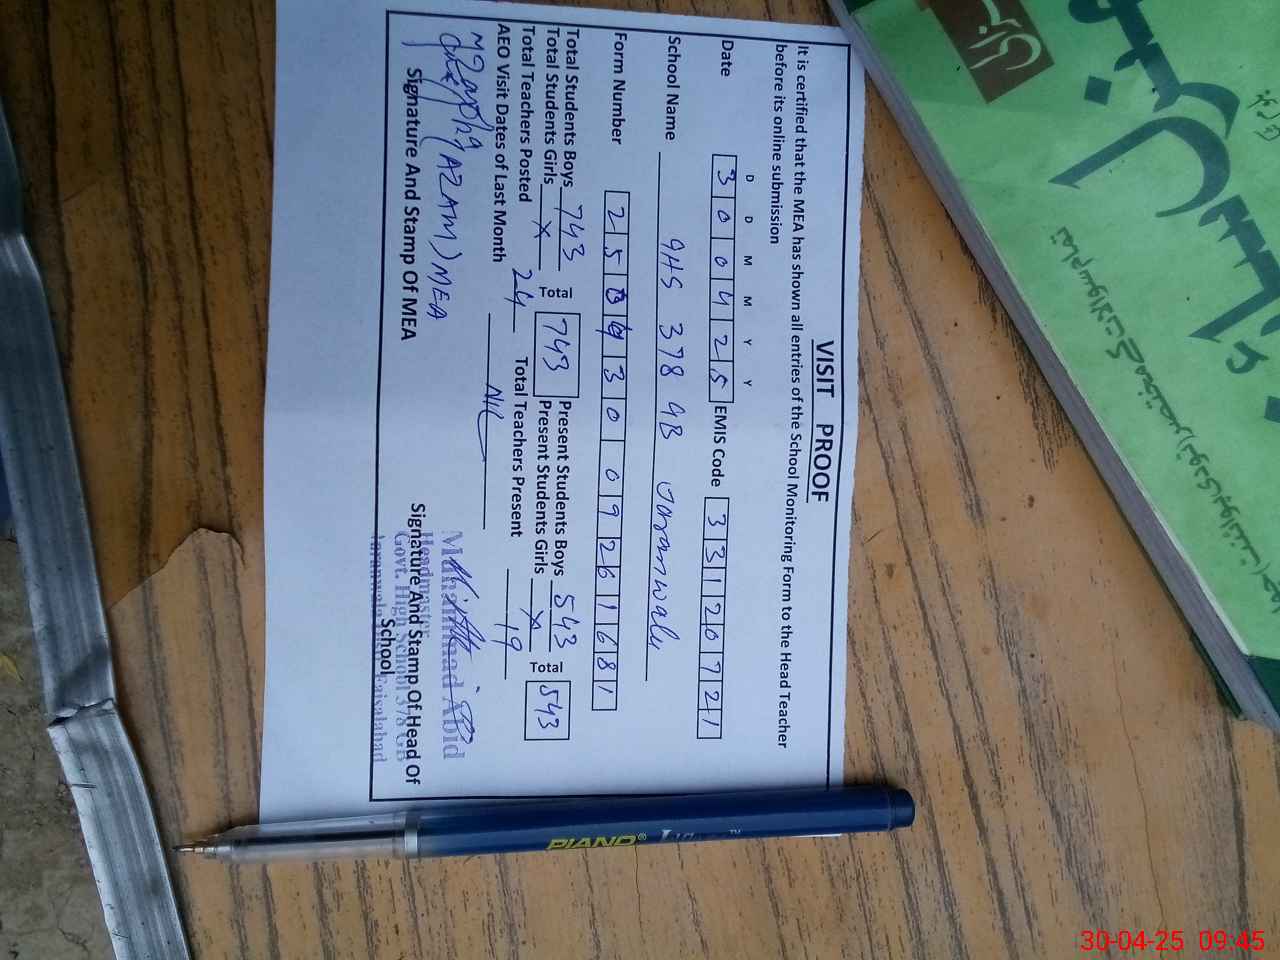 VISIT PROOF
It is certified that the MEA has shown all entries of the School Monitoring Form to the Head Teacher
before its online submission
D D M M Y Y
Date 3 0 0 4 2 5 EMIS Code 3 3 1 2 0 7 2 1
School Name GHS 378 GB Jaranwala
Form Number 2 5 0 4 3 0 0 9 2 6 1 6 8 1
Total Students Boys 743 Total 743 Present Students Boys 543 Total 543
Total Students Girls X Present Students Girls X
Total Teachers Posted 24 Total Teachers Present 19
AEO Visit Dates of Last Month Nil
(AZAM) MEA
Signature And Stamp Of MEA
Muhammad Abid
Headmaster
Govt. High School 378 GB
Jaranwala Faisalabad
Signature And Stamp Of Head Of
School
PIANO®
30-04-25 09:45